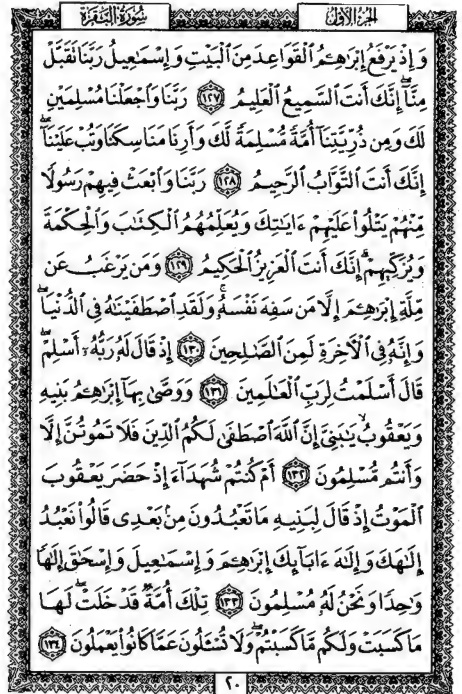 سُورَةُ البَقَرَةِ
الجزء الأول
وَإِذۡ يَرۡفَعُ إِبۡرَٰهِـۧمُ ٱلۡقَوَاعِدَ مِنَ ٱلۡبَيۡتِ وَإِسۡمَٰعِيلُ رَبَّنَا تَقَبَّلۡ
مِنَّآۖ إِنَّكَ أَنتَ ٱلسَّمِيعُ ٱلۡعَلِيمُ ١٢٧ رَبَّنَا وَٱجۡعَلۡنَا مُسۡلِمَيۡنِ
لَكَ وَمِن ذُرِّيَّتِنَآ أُمَّةٗ مُّسۡلِمَةٗ لَّكَ وَأَرِنَا مَنَاسِكَنَا وَتُبۡ عَلَيۡنَآۖ
إِنَّكَ أَنتَ ٱلتَّوَّابُ ٱلرَّحِيمُ ١٢٨ رَبَّنَا وَٱبۡعَثۡ فِيهِمۡ رَسُولٗا
مِّنۡهُمۡ يَتۡلُواْ عَلَيۡهِمۡ ءَايَٰتِكَ وَيُعَلِّمُهُمُ ٱلۡكِتَٰبَ وَٱلۡحِكۡمَةَ
وَيُزَكِّيهِمۡۖ إِنَّكَ أَنتَ ٱلۡعَزِيزُ ٱلۡحَكِيمُ ١٢٩ وَمَن يَرۡغَبُ عَن
مِّلَّةِ إِبۡرَٰهِـۧمَ إِلَّا مَن سَفِهَ نَفۡسَهُۥۚ وَلَقَدِ ٱصۡطَفَيۡنَٰهُ فِي ٱلدُّنۡيَاۖ
وَإِنَّهُۥ فِي ٱلۡأٓخِرَةِ لَمِنَ ٱلصَّٰلِحِينَ ١٣٠ إِذۡ قَالَ لَهُۥ رَبُّهُۥٓ أَسۡلِمۡۖ
قَالَ أَسۡلَمۡتُ لِرَبِّ ٱلۡعَٰلَمِينَ ١٣١ وَوَصَّىٰ بِهَآ إِبۡرَٰهِـۧمُ بَنِيهِ
وَيَعۡقُوبُ يَٰبَنِيَّ إِنَّ ٱللَّهَ ٱصۡطَفَىٰ لَكُمُ ٱلدِّينَ فَلَا تَمُوتُنَّ إِلَّا
وَأَنتُم مُّسۡلِمُونَ ١٣٢ أَمۡ كُنتُمۡ شُهَدَآءَ إِذۡ حَضَرَ يَعۡقُوبَ
ٱلۡمَوۡتُ إِذۡ قَالَ لِبَنِيهِ مَا تَعۡبُدُونَ مِنۢ بَعۡدِي قَالُواْ نَعۡبُدُ
إِلَٰهَكَ وَإِلَٰهَ ءَابَآئِكَ إِبۡرَٰهِـۧمَ وَإِسۡمَٰعِيلَ وَإِسۡحَٰقَ إِلَٰهٗا
وَٰحِدٗا وَنَحۡنُ لَهُۥ مُسۡلِمُونَ ١٣٣ تِلۡكَ أُمَّةٞ قَدۡ خَلَتۡۖ لَهَا
مَا كَسَبَتۡ وَلَكُم مَّا كَسَبۡتُمۡۖ وَلَا تُسۡـَٔلُونَ عَمَّا كَانُواْ يَعۡمَلُونَ ١٣٤
٢٠